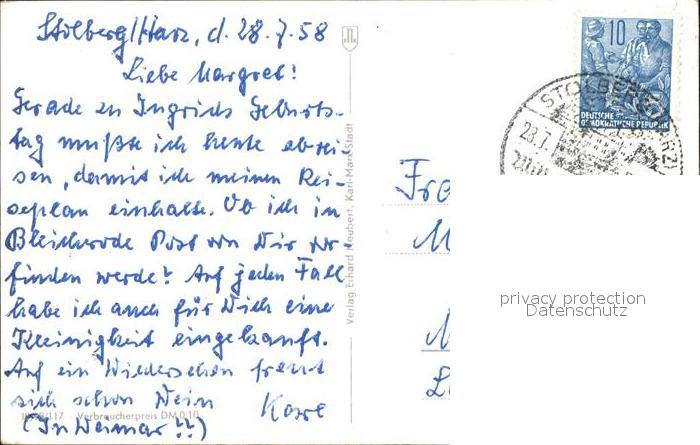 Stolberg/Harz, d. 28.7.58
Liebe Margret!
Gerade an Ingrids Geburts-
tag mußte ich heute abrei-
sen, damit ich meinen Rei-
seplan einhalte. Ob ich in
Bleicherode Post von Dir vor
finden werde? Auf jeden Fall
habe ich auch für Dich eine
Kleinigkeit eingekauft.
Auf ein Wiedersehen freut
sich schon Dein
(In Weimar!!)
117 Verbraucherpreis DM 0,10
Verlag Erhard Neubert, Karl-Marx-Stadt
10
DEUTSCHE
DEMOKRATISCHE REPUBLIK
STOLBERG (HARZ)
28.7.
Fra
M
privacy protection
Datenschutz